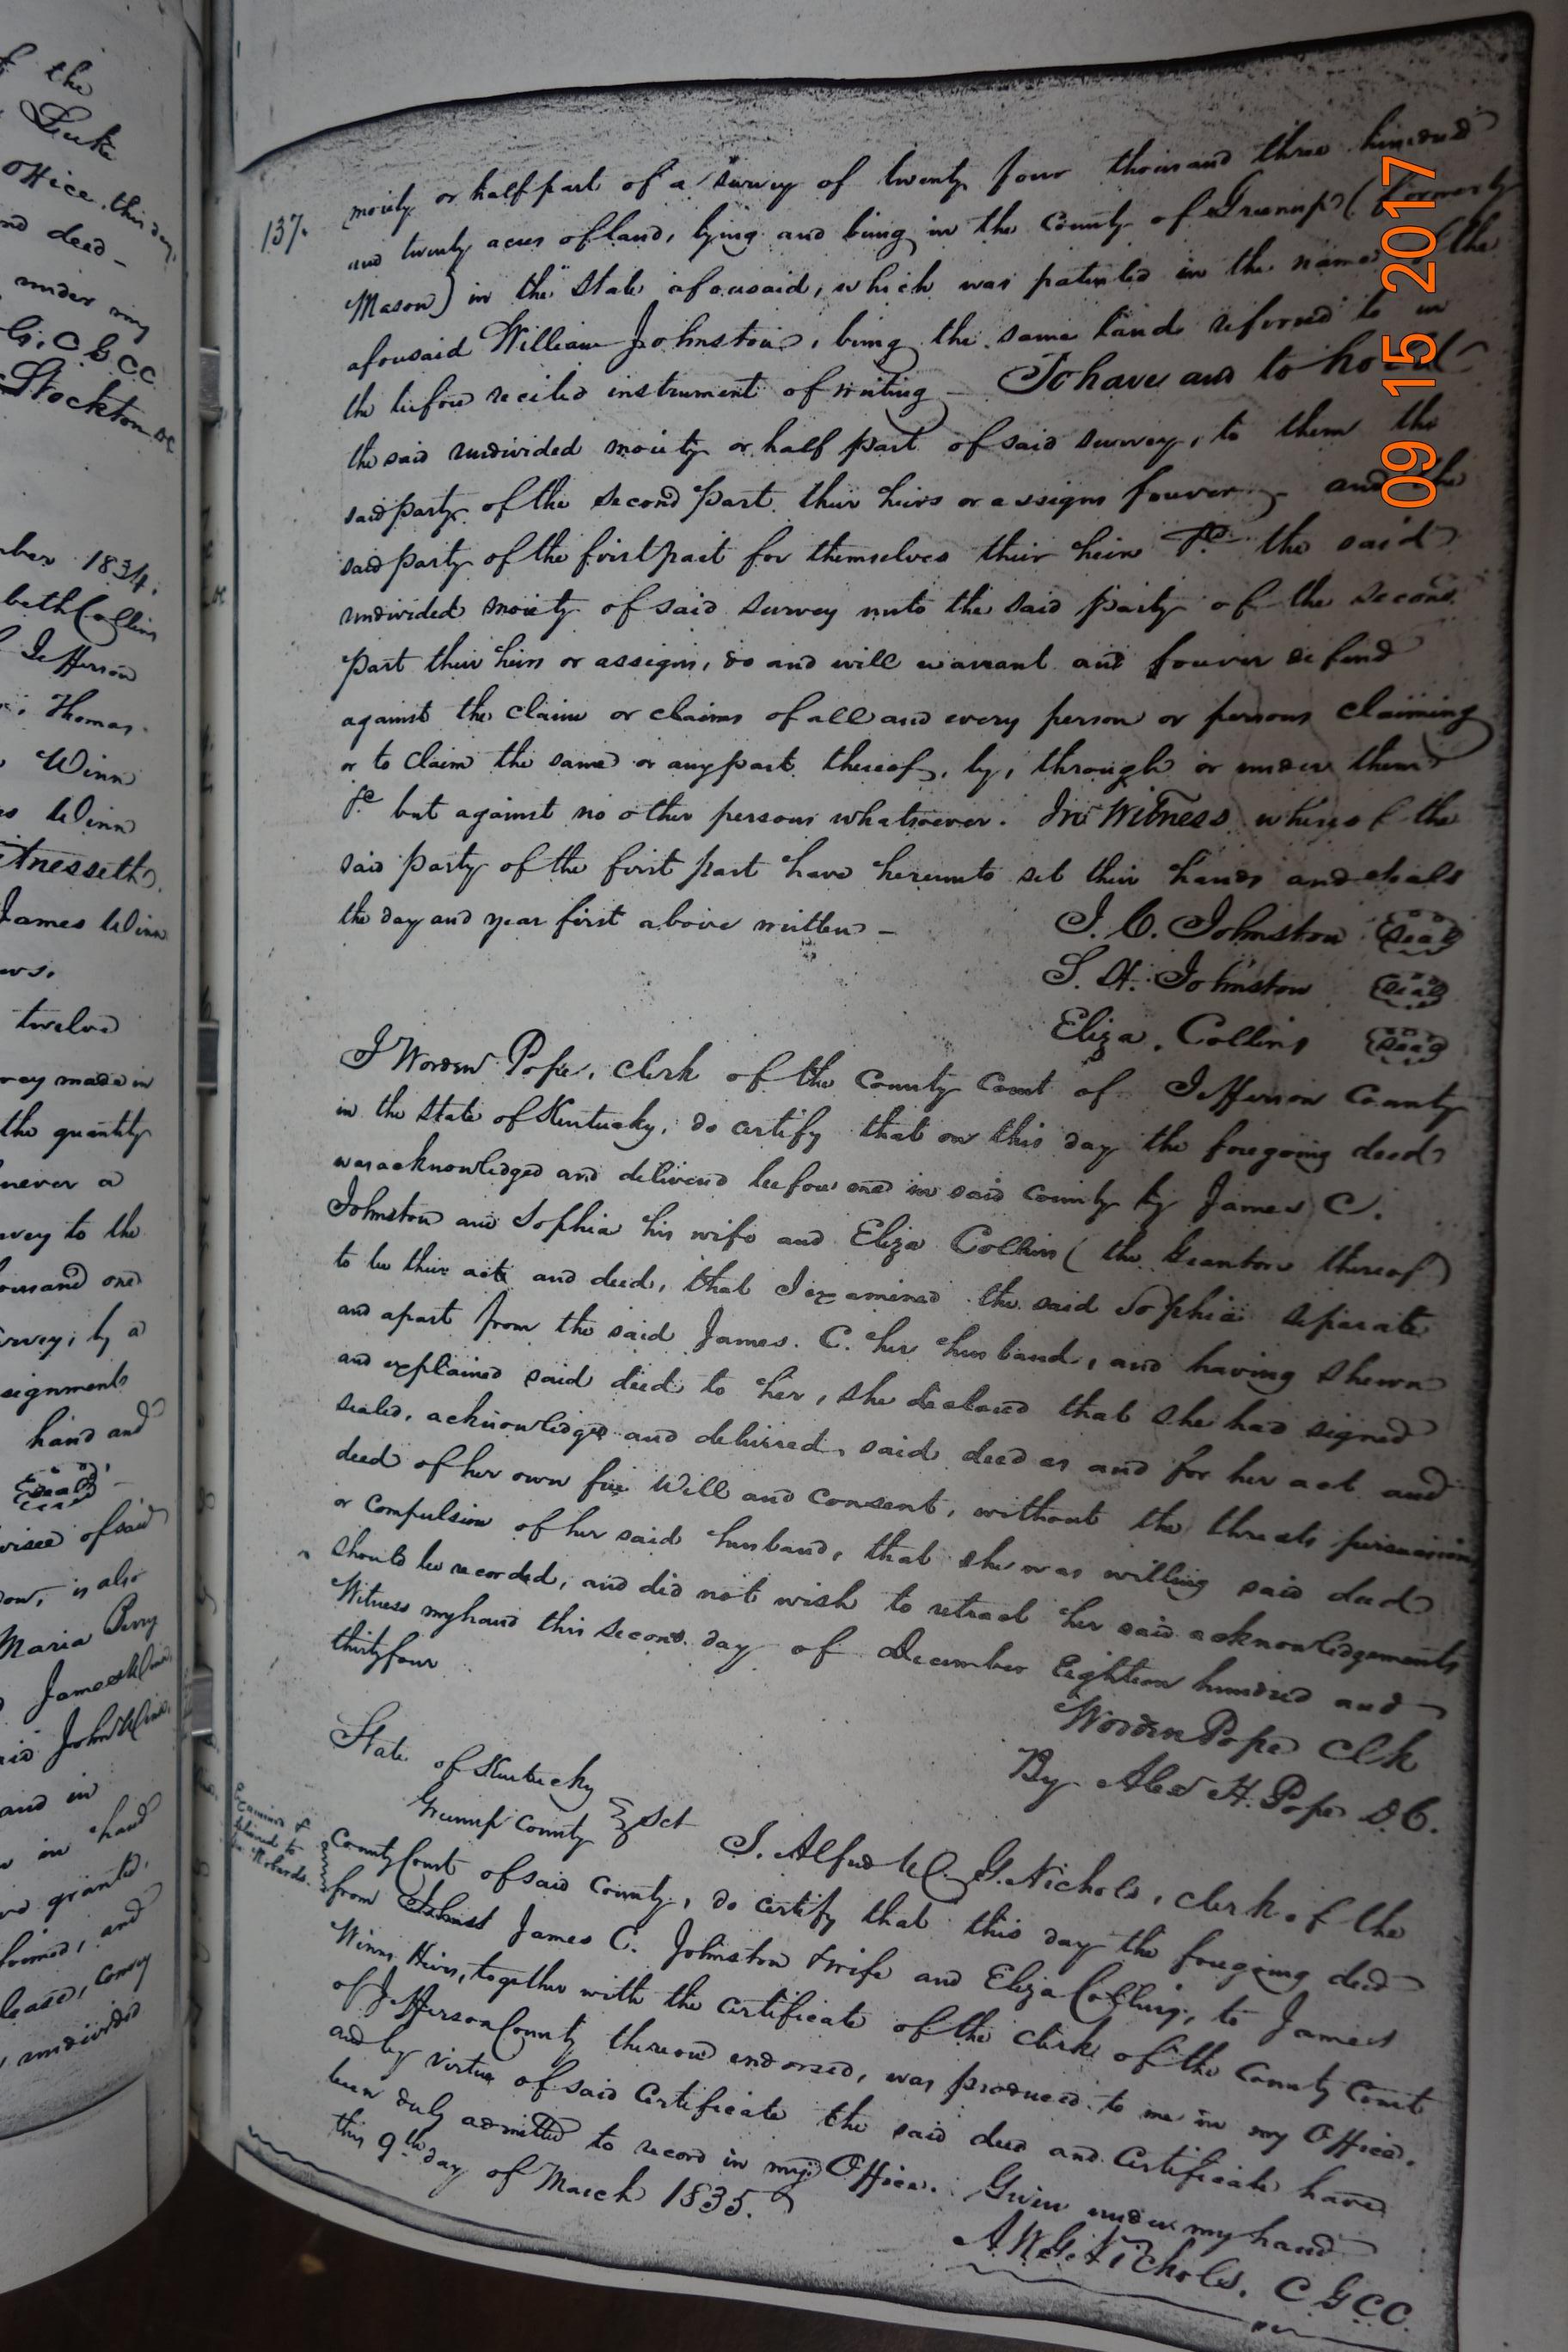 f the
Office, this day
nd deed -
under my
G. C. G. C. C.
Stockton DC
ber 1834.
beth Collins
Jefferson
Thomas.
Winn
Winn
itnesseth.
James Winn
ws.
twelve
vey made in
the quantity
never a
vey to the
ousand one
urvey; by a
signments
hand and
Seal
visee of said
ow, is also
Maria Perry
James Winn
id John Winn
and in
in hand
granted,
and
lease, convey
undivided
137.
moiety or half part of a survey of twenty four thousand three hundred
and twenty acres of land, lying and being in the County of Greenup (formerly
Mason) in the State aforesaid, which was patented in the name of the
aforesaid William Johnston, being the same land referred to in
the before recited instrument of writing - To have and to hold
the said undivided moiety or half part of said survey, to them the
said party of the second part their heirs or assigns forever, and the
said party of the first part for themselves their heirs &c the said
undivided moiety of said survey unto the said party of the second
part their heirs or assigns, do and will warrant and forever defend
against the claim or claims of all and every person or persons claiming
or to claim the same or any part thereof, by, through or under them
&c but against no other persons whatsoever. In Witness whereof the
said party of the first part have hereunto set their hands and seals
the day and year first above written -
J. C. Johnston Seal
S. H. Johnston Seal
Eliza. Collins Seal
I Worden Pope, clerk of the County Court of Jefferson County
in the State of Kentucky, do certify that on this day the foregoing deed
was acknowledged and delivered before me in said county by James C.
Johnston and Sophia his wife and Eliza Collins (the Grantors thereof)
to be their act and deed, that I examined the said Sophia separate
and apart from the said James. C. her husband, and having shewn
and explained said deed to her, she declared that she had signed
sealed, acknowledged and delivered, said deed as and for her act and
deed of her own free Will and consent, without the threats persuasion
or compulsion of her said husband, that she was willing said deed
should be recorded, and did not wish to retract her said acknowledgements
Witness my hand this second day of December Eighteen hundred and
thirty four
Worden Pope Clk
By Alex H. Pope D.C.
State of Kentucky
Greenup County Sct
I. Alfred W. G. Nichols, clerk of the
Examined &
delivered to
Robards.
County Court of said County, do certify that this day the foregoing deed
from James C. Johnston & wife and Eliza Collins, to James
Winns Heirs, together with the certificate of the clerk of the County Court
of Jefferson County thereon endorsed, was produced to me in my Office,
and by virtue of said Certificate the said deed and Certificate have
been duly admitted to record in my Office. Given under my hand
this 9th day of March 1835.
A. W. G. Nichols. C G C C.
09 15 2017